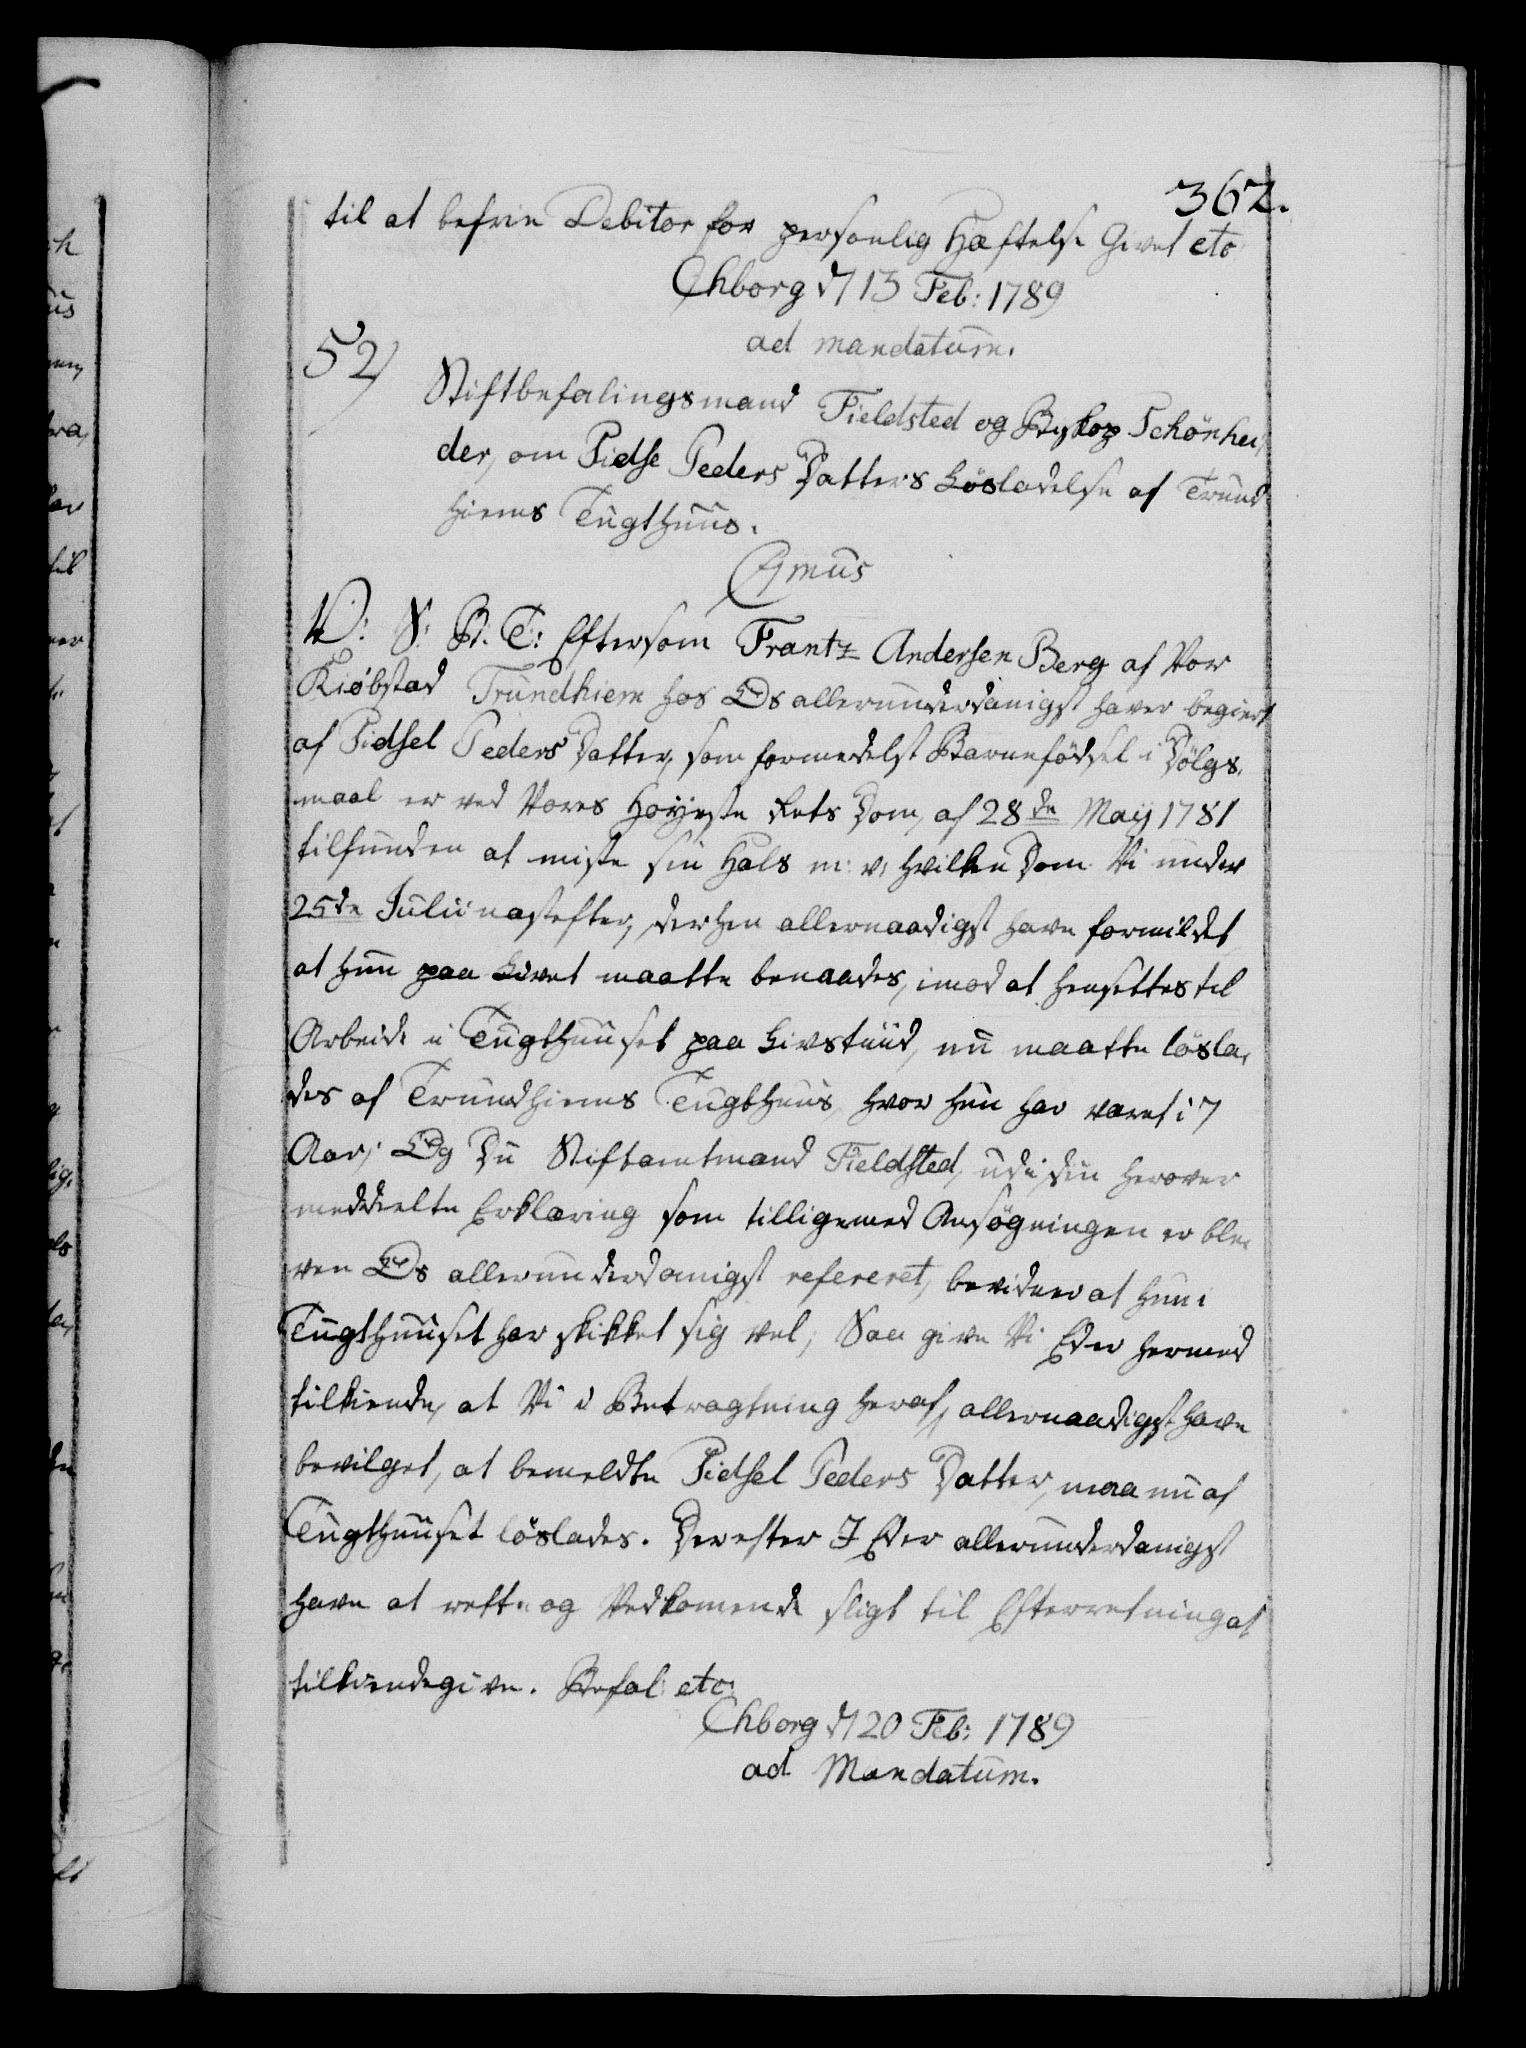 362.
til at befrie Debitor for personlig Hæftelse Givet etc
Chborg d 13 Feb: 1789
ad mandatum.
52) Stiftbefalingsmand Fieldsted og Biskop Schönhei,
der, om Pidse Peders Datters Lösladelse af Trund
hiems Tugthuus.
C7mus
V: S: B: T: Eftersom Frantz Andersen Berg af Vor
Kiøbstad Trundhiem hos Os allerunderdanigst haver begiert
af Pidsel Peders Datter, som formedelst Barnefödsel i Dölgs,
maal er ved Vores Høyeste Rets Dom, af 28de Maij 1781
tilfunden at miste sin Hals m: v: hvilken Dom Vi under
25de Julii næstefter, derhen allernaadigst have formildet
at hun paa Livet maatte benaades, imod at hensettes til
Arbeide i Tugthuuset paa Livstiid, nu maatte lösla,
des af Trundhiems Tugthuus, hvor hun har været i 7
Aar; Og Du Stiftamtmand Fieldsted, udi din herover
meddeelte Erklæring som tilligemed Ansögningen er ble,
ven Os allerunderdanigst refereret, bevidner at hun i
Tugthuuset har skikket sig vel; Saa give Vi Eder hermed
tilkiende, at Vi i Betragtning heraf, allernaadigst have
bevilget, at bemeldte Pidsel Peders Datter, maa nu af
Tugthuuset löslades. Derefter I Eder allerunderdanigst
have at rette og Vedkomende sligt til Efterretning at
tilkiendegive. Befal: etc:
Chborg d 20 Feb: 1789
ad Mandatum.